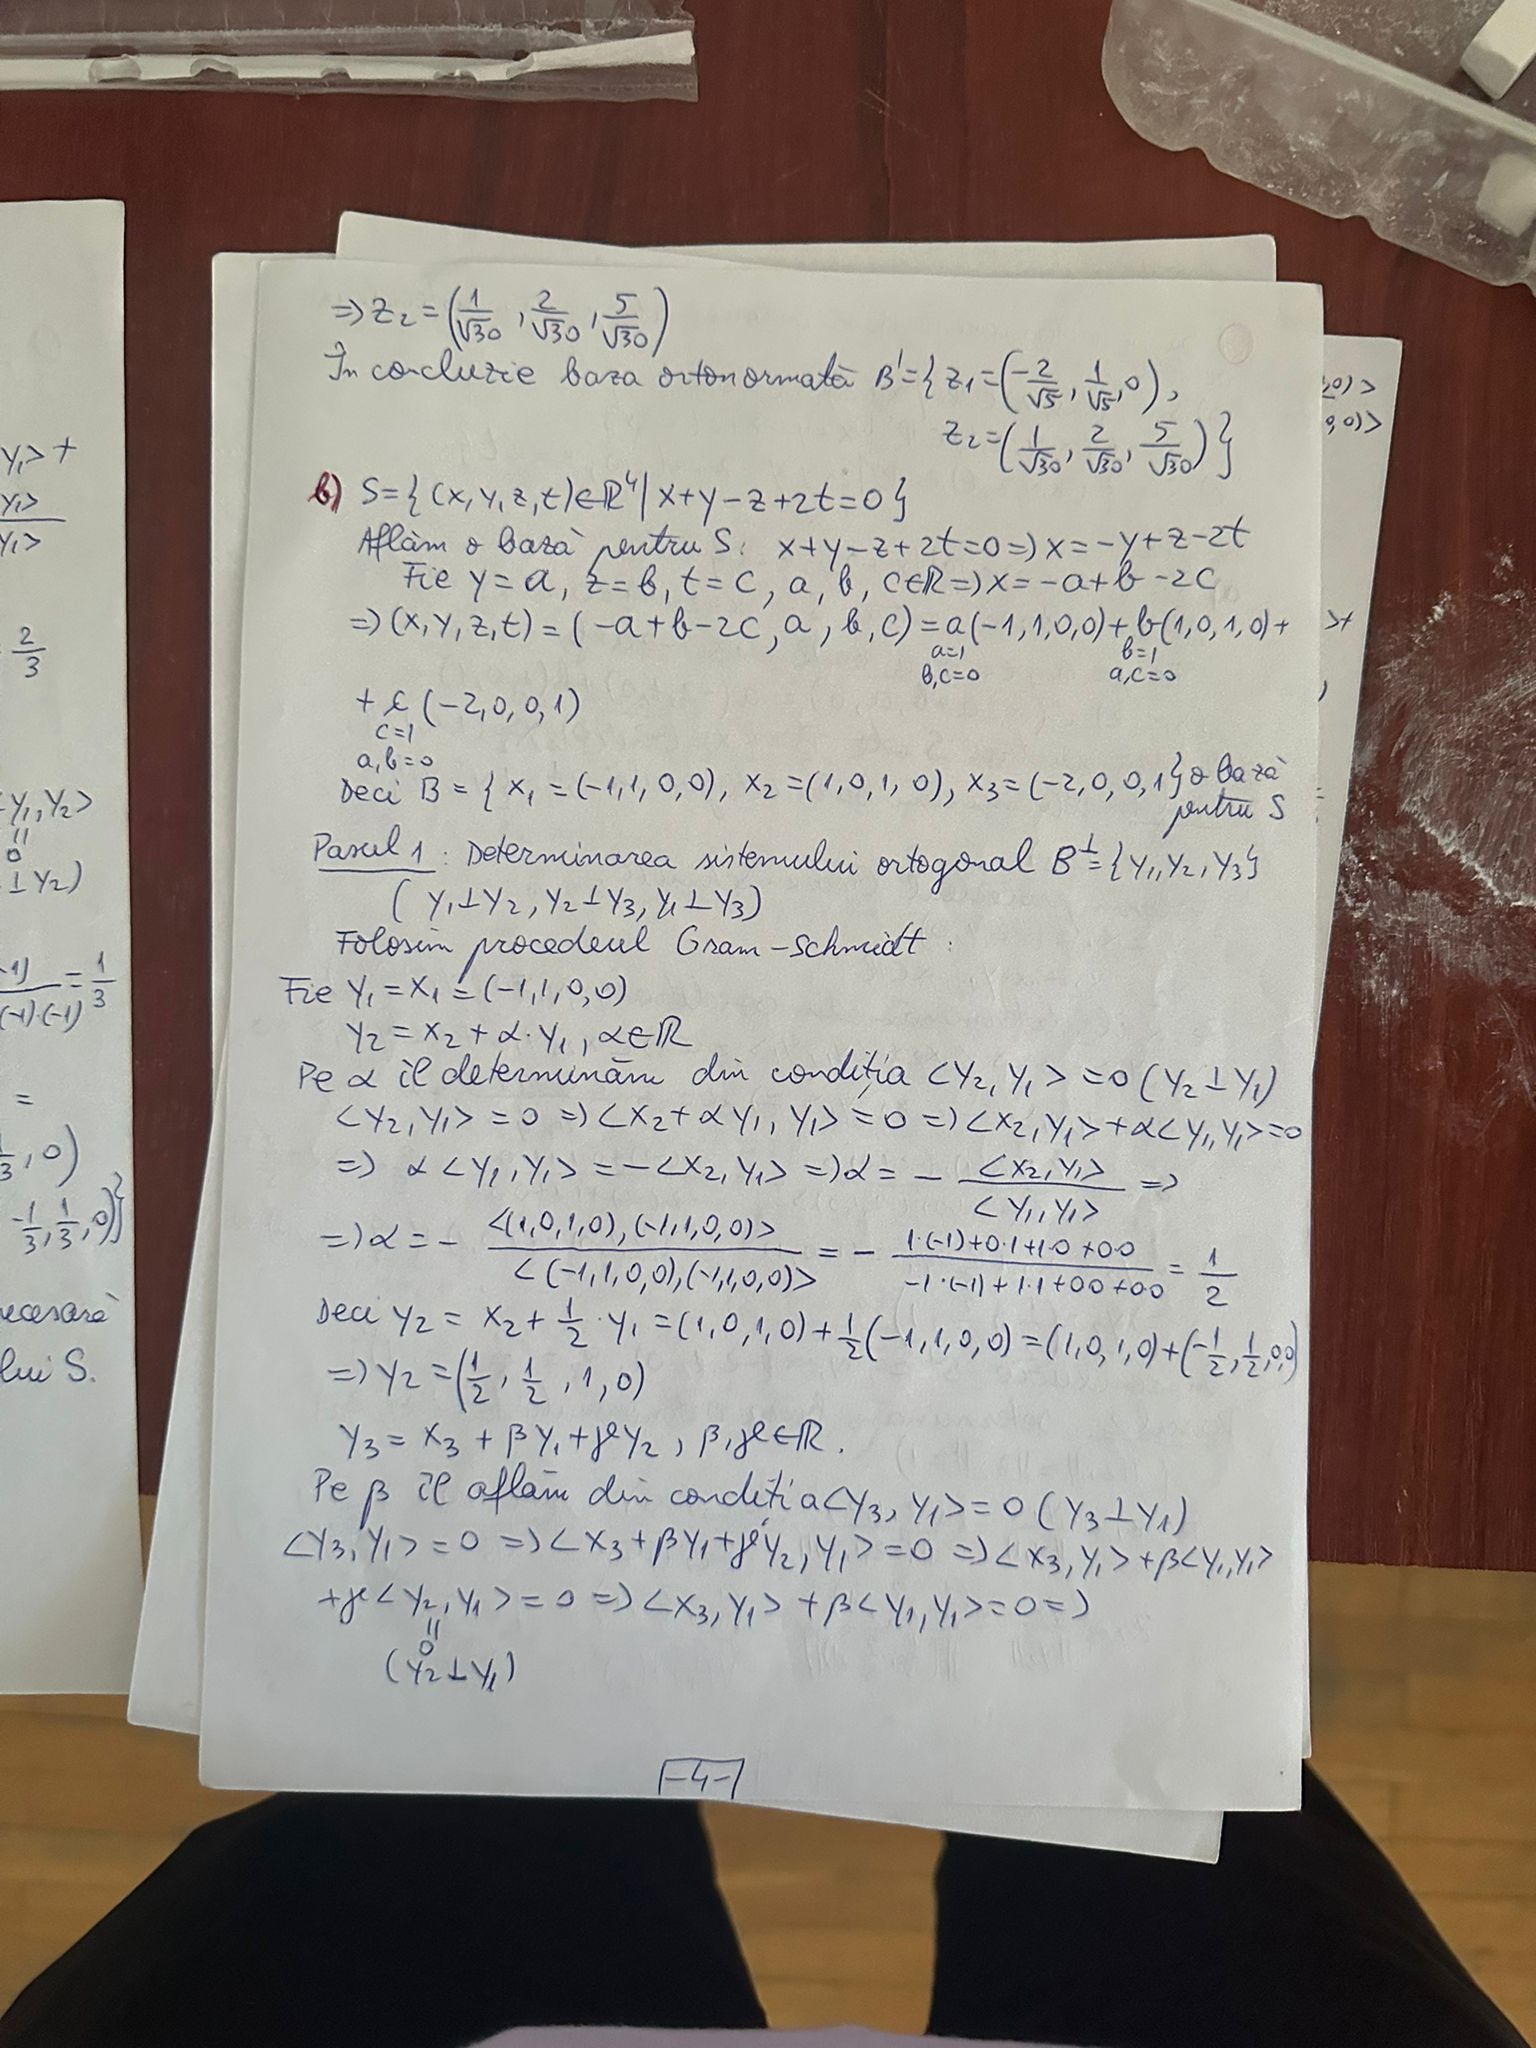 => Z₂ = (1/√30, 2/√30, 5/√30)
În concluzie baza ortonormată B' = { Z₁ = (-2/√5, 1/√5, 0),
Z₂ = (1/√30, 2/√30, 5/√30) }
b) S = { (x, y, z, t) ∈ ℝ⁴ | x+y-z+2t=0 }
Aflăm o bază pentru S: x+y-z+2t=0 => x=-y+z-2t
Fie y=a, z=b, t=c, a, b, c∈ℝ => x=-a+b-2c
=> (x,y,z,t) = (-a+b-2c, a, b, c) = a(-1,1,0,0)+b(1,0,1,0)+
a=1 b=1
b,c=0 a,c=0
+ c (-2,0,0,1)
c=1
a,b=0
Deci B = { x₁ = (-1,1,0,0), x₂ = (1,0,1,0), x₃ = (-2,0,0,1} o bază
pentru S
Pasul 1: Determinarea sistemului ortogonal B^⊥ = {y₁, y₂, y₃}
(y₁⊥y₂, y₂⊥y₃, y₁⊥y₃)
Folosim procedeul Gram-Schmidt:
Fie y₁ = x₁ = (-1,1,0,0)
y₂ = x₂ + α·y₁, α∈ℝ
Pe α îl determinăm din condiția <y₂, y₁> = 0 (y₂⊥y₁)
<y₂,y₁> = 0 => <x₂+αy₁, y₁> = 0 => <x₂,y₁>+α<y₁,y₁>=0
=> α<y₁,y₁> = -<x₂,y₁> => α = - <x₂,y₁>/<y₁,y₁> =>
=> α = - <(1,0,1,0),(-1,1,0,0)>/<(-1,1,0,0),(-1,1,0,0)> = - 1·(-1)+0·1+1·0+0·0/-1·(-1)+1·1+0·0+0·0 = 1/2
Deci y₂ = x₂ + 1/2·y₁ = (1,0,1,0)+1/2(-1,1,0,0) = (1,0,1,0)+(-1/2,1/2,0,0)
=> y₂ = (1/2, 1/2, 1, 0)
y₃ = x₃ + βy₁+γy₂, β,γ∈ℝ.
Pe β îl aflăm din condiția <y₃, y₁> = 0 (y₃⊥y₁)
<y₃,y₁> = 0 => <x₃+βy₁+γy₂, y₁> = 0 => <x₃,y₁>+β<y₁,y₁>
+γ<y₂,y₁> = 0 => <x₃,y₁> + β<y₁,y₁> = 0 =>
=
0
(y₂⊥y₁)
-4-
y₁> +
y₁>
y₁>
2/3
y₁,y₂>
=
0
⊥y₂)
-1)/(-1)·(-1) = 1/3
=
1/3, 0)
-1/3, 1/3, 0)}
necesară
lui S.
,0)>
0,0)>
>+
)
=